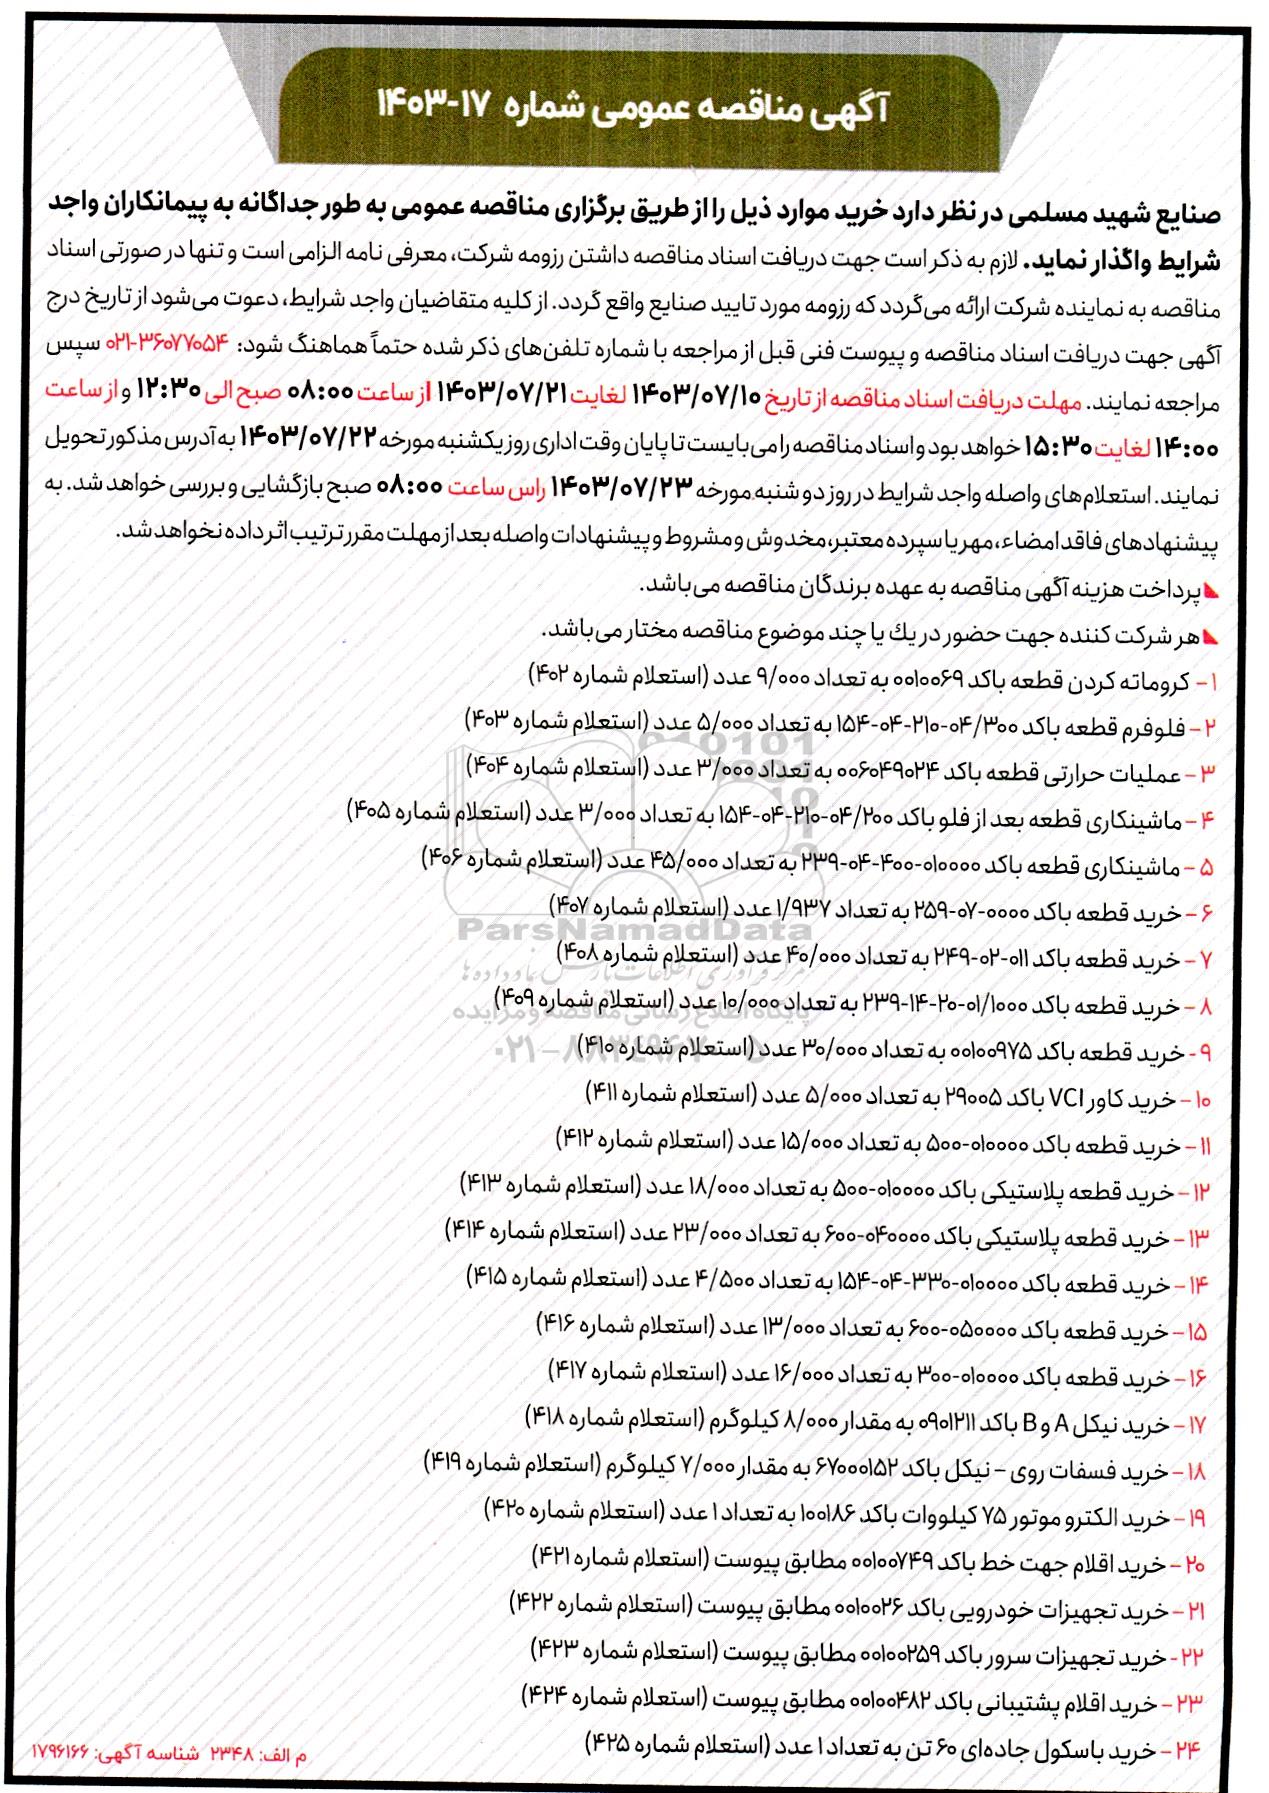 آگهی مناقصه عمومی شماره ۱۷-۱۴۰۳
صنایع شهید مسلمی در نظر دارد خرید موارد ذیل را از طریق برگزاری مناقصه عمومی به طور جداگانه به پیمانکاران واجد
شرایط واگذار نماید. لازم به ذکر است جهت دریافت اسناد مناقصه داشتن رزومه شرکت، معرفی نامه الزامی است و تنها در صورتی اسناد
مناقصه به نماینده شرکت ارائه می‌گردد که رزومه مورد تایید صنایع واقع گردد. از کلیه متقاضیان واجد شرایط، دعوت می‌شود از تاریخ درج
آگهی جهت دریافت اسناد مناقصه و پیوست فنی قبل از مراجعه با شماره تلفن‌های ذکر شده حتماً هماهنگ شود: ۳۶۰۷۷۰۵۴-۰۲۱ سپس
مراجعه نمایند. مهلت دریافت اسناد مناقصه از تاریخ ۱۴۰۳/۰۷/۱۰ لغایت ۱۴۰۳/۰۷/۲۱ از ساعت ۰۸:۰۰ صبح الی ۱۲:۳۰ و از ساعت
۱۴:۰۰ لغایت ۱۵:۳۰ خواهد بود و اسناد مناقصه را می‌بایست تا پایان وقت اداری روز یکشنبه مورخه ۱۴۰۳/۰۷/۲۲ به آدرس مذکور تحویل
نمایند. استعلام‌های واصله واجد شرایط در روز دو شنبه مورخه ۱۴۰۳/۰۷/۲۳ راس ساعت ۰۸:۰۰ صبح بازگشایی و بررسی خواهد شد. به
پیشنهادهای فاقد امضاء، مهر یا سپرده معتبر، مخدوش و مشروط و پیشنهادات واصله بعد از مهلت مقرر ترتیب اثر داده نخواهد شد.
پرداخت هزینه آگهی مناقصه به عهده برندگان مناقصه می‌باشد.
هر شرکت کننده جهت حضور در یك یا چند موضوع مناقصه مختار می‌باشد.
۱- کروماته کردن قطعه باکد ۰۰۱۰۰۶۹ به تعداد ۹/۰۰۰ عدد (استعلام شماره ۴۰۲)
۲- فلوفرم قطعه باکد ۰۴/۳۰۰-۲۱۰-۰۴-۱۵۴ به تعداد ۵/۰۰۰ عدد (استعلام شماره ۴۰۳)
۳- عملیات حرارتی قطعه باکد ۰۰۶۰۴۹۰۲۴ به تعداد ۳/۰۰۰ عدد (استعلام شماره ۴۰۴)
۴- ماشینکاری قطعه بعد از فلو باکد ۰۴/۲۰۰-۲۱۰-۰۴-۱۵۴ به تعداد ۳/۰۰۰ عدد (استعلام شماره ۴۰۵)
۵- ماشینکاری قطعه باکد ۰۱۰۰۰۰-۴۰۰-۰۴-۲۳۹ به تعداد ۴۵/۰۰۰ عدد (استعلام شماره ۴۰۶)
۶- خرید قطعه باکد ۰۰۰۰-۰۷-۲۵۹ به تعداد ۱/۹۳۷ عدد (استعلام شماره ۴۰۷)
ParsNamadData
۷- خرید قطعه باکد ۰۱۱-۰۲-۲۴۹ به تعداد ۴۰/۰۰۰ عدد (استعلام شماره ۴۰۸)
مرکز فرآوری اطلاعات پارس نماد داده‌ها
۸- خرید قطعه باکد ۰۱/۱۰۰۰-۲۰-۱۴-۲۳۹ به تعداد ۱۰/۰۰۰ عدد (استعلام شماره ۴۰۹)
پایگاه اطلاع رسانی مناقصه و مزایده
۹- خرید قطعه باکد ۰۰۱۰۰۹۷۵ به تعداد ۳۰/۰۰۰ عدد (استعلام شماره ۴۱۰)
۱۰- خرید کاور VCI باکد ۲۹۰۰۵ به تعداد ۵/۰۰۰ عدد (استعلام شماره ۴۱۱)
۱۱- خرید قطعه باکد ۰۱۰۰۰۰-۵۰۰ به تعداد ۱۵/۰۰۰ عدد (استعلام شماره ۴۱۲)
۱۲- خرید قطعه پلاستیکی باکد ۰۱۰۰۰۰-۵۰۰ به تعداد ۱۸/۰۰۰ عدد (استعلام شماره ۴۱۳)
۱۳- خرید قطعه پلاستیکی باکد ۰۴۰۰۰۰-۶۰۰ به تعداد ۲۳/۰۰۰ عدد (استعلام شماره ۴۱۴)
۱۴- خرید قطعه باکد ۰۱۰۰۰۰-۳۳۰-۰۴-۱۵۴ به تعداد ۴/۵۰۰ عدد (استعلام شماره ۴۱۵)
۱۵- خرید قطعه باکد ۰۵۰۰۰۰-۶۰۰ به تعداد ۱۳/۰۰۰ عدد (استعلام شماره ۴۱۶)
۱۶- خرید قطعه باکد ۰۱۰۰۰۰-۳۰۰ به تعداد ۱۶/۰۰۰ عدد (استعلام شماره ۴۱۷)
۱۷- خرید نیکل A و B باکد ۰۹۰۱۲۱۱ به مقدار ۸/۰۰۰ کیلوگرم (استعلام شماره ۴۱۸)
۱۸- خرید فسفات روی - نیکل باکد ۶۷۰۰۰۱۵۲ به مقدار ۷/۰۰۰ کیلوگرم (استعلام شماره ۴۱۹)
۱۹- خرید الکترو موتور ۷۵ کیلووات باکد ۱۰۰۱۸۶ به تعداد ۱ عدد (استعلام شماره ۴۲۰)
۲۰- خرید اقلام جهت خط باکد ۰۰۱۰۰۷۴۹ مطابق پیوست (استعلام شماره ۴۲۱)
۲۱- خرید تجهیزات خودرویی باکد ۰۰۱۰۰۲۶ مطابق پیوست (استعلام شماره ۴۲۲)
۲۲- خرید تجهیزات سرور باکد ۰۰۱۰۰۲۵۹ مطابق پیوست (استعلام شماره ۴۲۳)
۲۳- خرید اقلام پشتیبانی باکد ۰۰۱۰۰۴۸۲ مطابق پیوست (استعلام شماره ۴۲۴)
۲۴- خرید باسکول جاده‌ای ۶۰ تن به تعداد ۱ عدد (استعلام شماره ۴۲۵)
م الف: ۲۳۴۸ شناسه آگهی: ۱۷۹۶۱۶۶